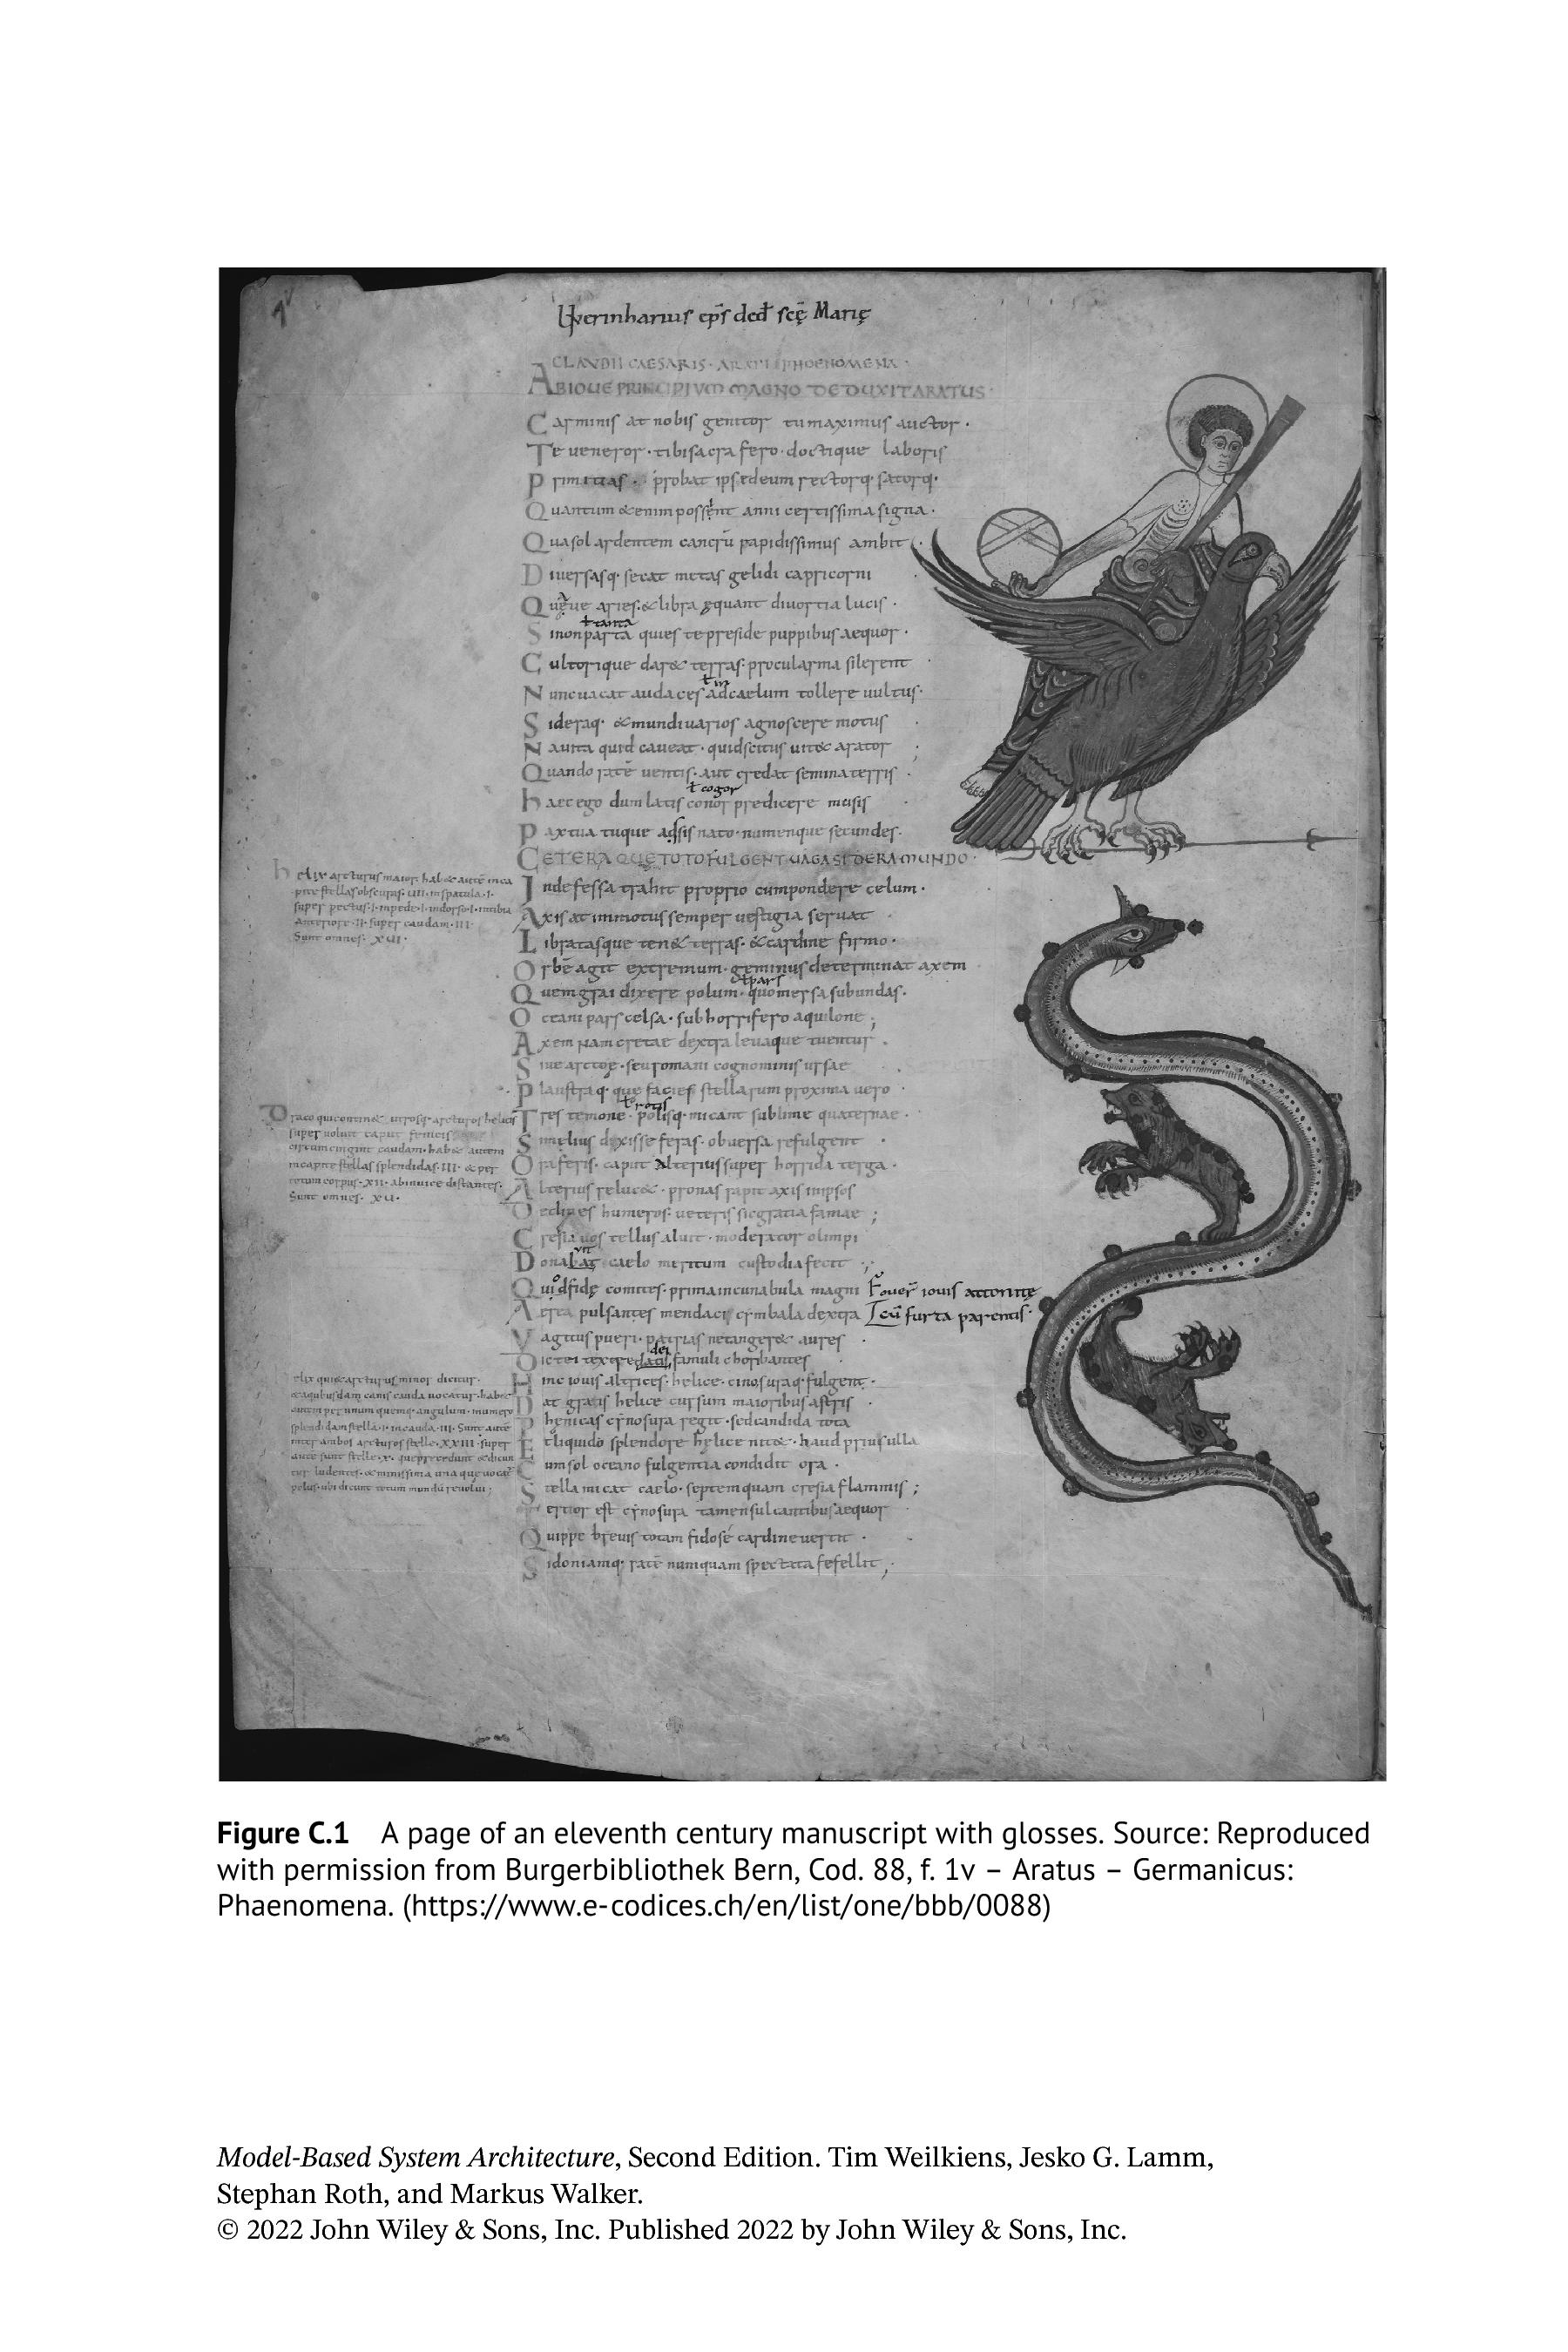 1v
Werinharius eps ded sce Marie
CLAVDII CAESARIS · ARATI PHOENOMENA ·
ABIOUE PRINCIPIVM MAGNO DEDUXIT ARATUS ·
Carminis at nobis genitor tu maximus auctor ·
Te ueneror · tibi sacra fero · doctique laboris
Primitias · probat ipse deum rectorq· satorq·
Quantum & enim possent anni certissima signa ·
Qua sol ardentem cancrū rapidissimus ambit
Diuersasq· secat metas gelidi capricorni
aries & libra equant diuortia lucis ·
ł tanta
Si non parta quies te preside puppibus aequor ·
Cultorique dar& terras · procul arma silerent
ł in
Nunc uacat audaces ad caelum tollere uultus ·
Sideraq· & mundi uarios agnoscere motus
Nauita quid caueat · quid scitus uit& arator ;
Quando ratē uentis · aut credat semina terris ·
ł cogor
haec ego dum latis conor predicere musis
Pax tua tuque adsis nato · numenque secundes ·
CETERA QUE TOTO FULGENT UAGA SIDERA MUNDO ·
Indefessa trahit proprio cum pondere celum ·
Axis at immotus semper uestigia seruat
Libratasque ten& terras · & cardine firmo ·
Orbē agit extremum · geminus determinat axem
ł pars
Quem grai dixere polum · quo mersa sub undas ·
Octani pars celsa · sub horrifero aquilone ;
Axem nam cretae dextra leuaque tuentur ·
Siue arctoe · seu romani cognominis ursae
Planstraq· que facies stellarum proxima uero ·
ł rotis
Tres temone · polisq· micant sublime quaternae ·
Si melius dixisse feras · obuersa refulgent ·
Ora feris · caput alterius super horrida terga ·
Alterius reluc& · pronas rapit axis in ipsos
Decliues humeros · ueteris si gratia famae ;
Cresia uos tellus aluit · moderator olimpi
Donabat caelo meritum custodia fecit ;
Quid fide comites · prima incunabula magni Fouer iouis attonite
Aerea pulsantes mendaci cymbala dextra cū furta parentis ·
Vagitus pueri · patrias ne tanger& aures
famuli choribantes
Hinc iouis altrices · helice · cinosuraq· fulgent ·
Dat grais helice cursum maioribus astris ·
Phenicas cynosura regit · sed candida tota
Et liquido splendore helice nit& · haud prius ulla
Cum sol oceano fulgentia condidit ora ·
Stella micat caelo · septem quam cresia flammis ;
Certior est cynosura tamen sulcantibus aequor
Quippe breuis totam fido se cardine uertit ·
Sidoniamq· ratē numquam spectata fefellit ;
helix arcturus maior · hab& autē in ca
pite stellas obscuras · UII · in spatula · I ·
super pectus · I · in pede · I · in dorso · I · in tibia
Anteriore · II · super caudam · III ·
Sunt omnes · XUI ·
Draco qui contin& utrosq· arcturos
super uoluit caput
circumcingit caudam · hab& autem
in capite stellas splendidas · III · & per
totum corpus · XII · ab inuice distantes ·
Sunt omnes · XU ·
elix qui & arcturus minor dicitur ·
& a quibusdam canis cauda uocatur · hab&
autem per unum quemq· angulum · in umero
splendidam stella · I · in cauda · III · Sunt autē
inter ambos arcturos stelle · XXIII · super
ante sunt stelle · X · que precedunt & dicun
tur ludentes · & minissima una que uocat
polus · ubi dicunt totum mundū reuolui ;
Figure C.1 A page of an eleventh century manuscript with glosses. Source: Reproduced
with permission from Burgerbibliothek Bern, Cod. 88, f. 1v – Aratus – Germanicus:
Phaenomena. (https://www.e-codices.ch/en/list/one/bbb/0088)
Model-Based System Architecture, Second Edition. Tim Weilkiens, Jesko G. Lamm,
Stephan Roth, and Markus Walker.
© 2022 John Wiley & Sons, Inc. Published 2022 by John Wiley & Sons, Inc.